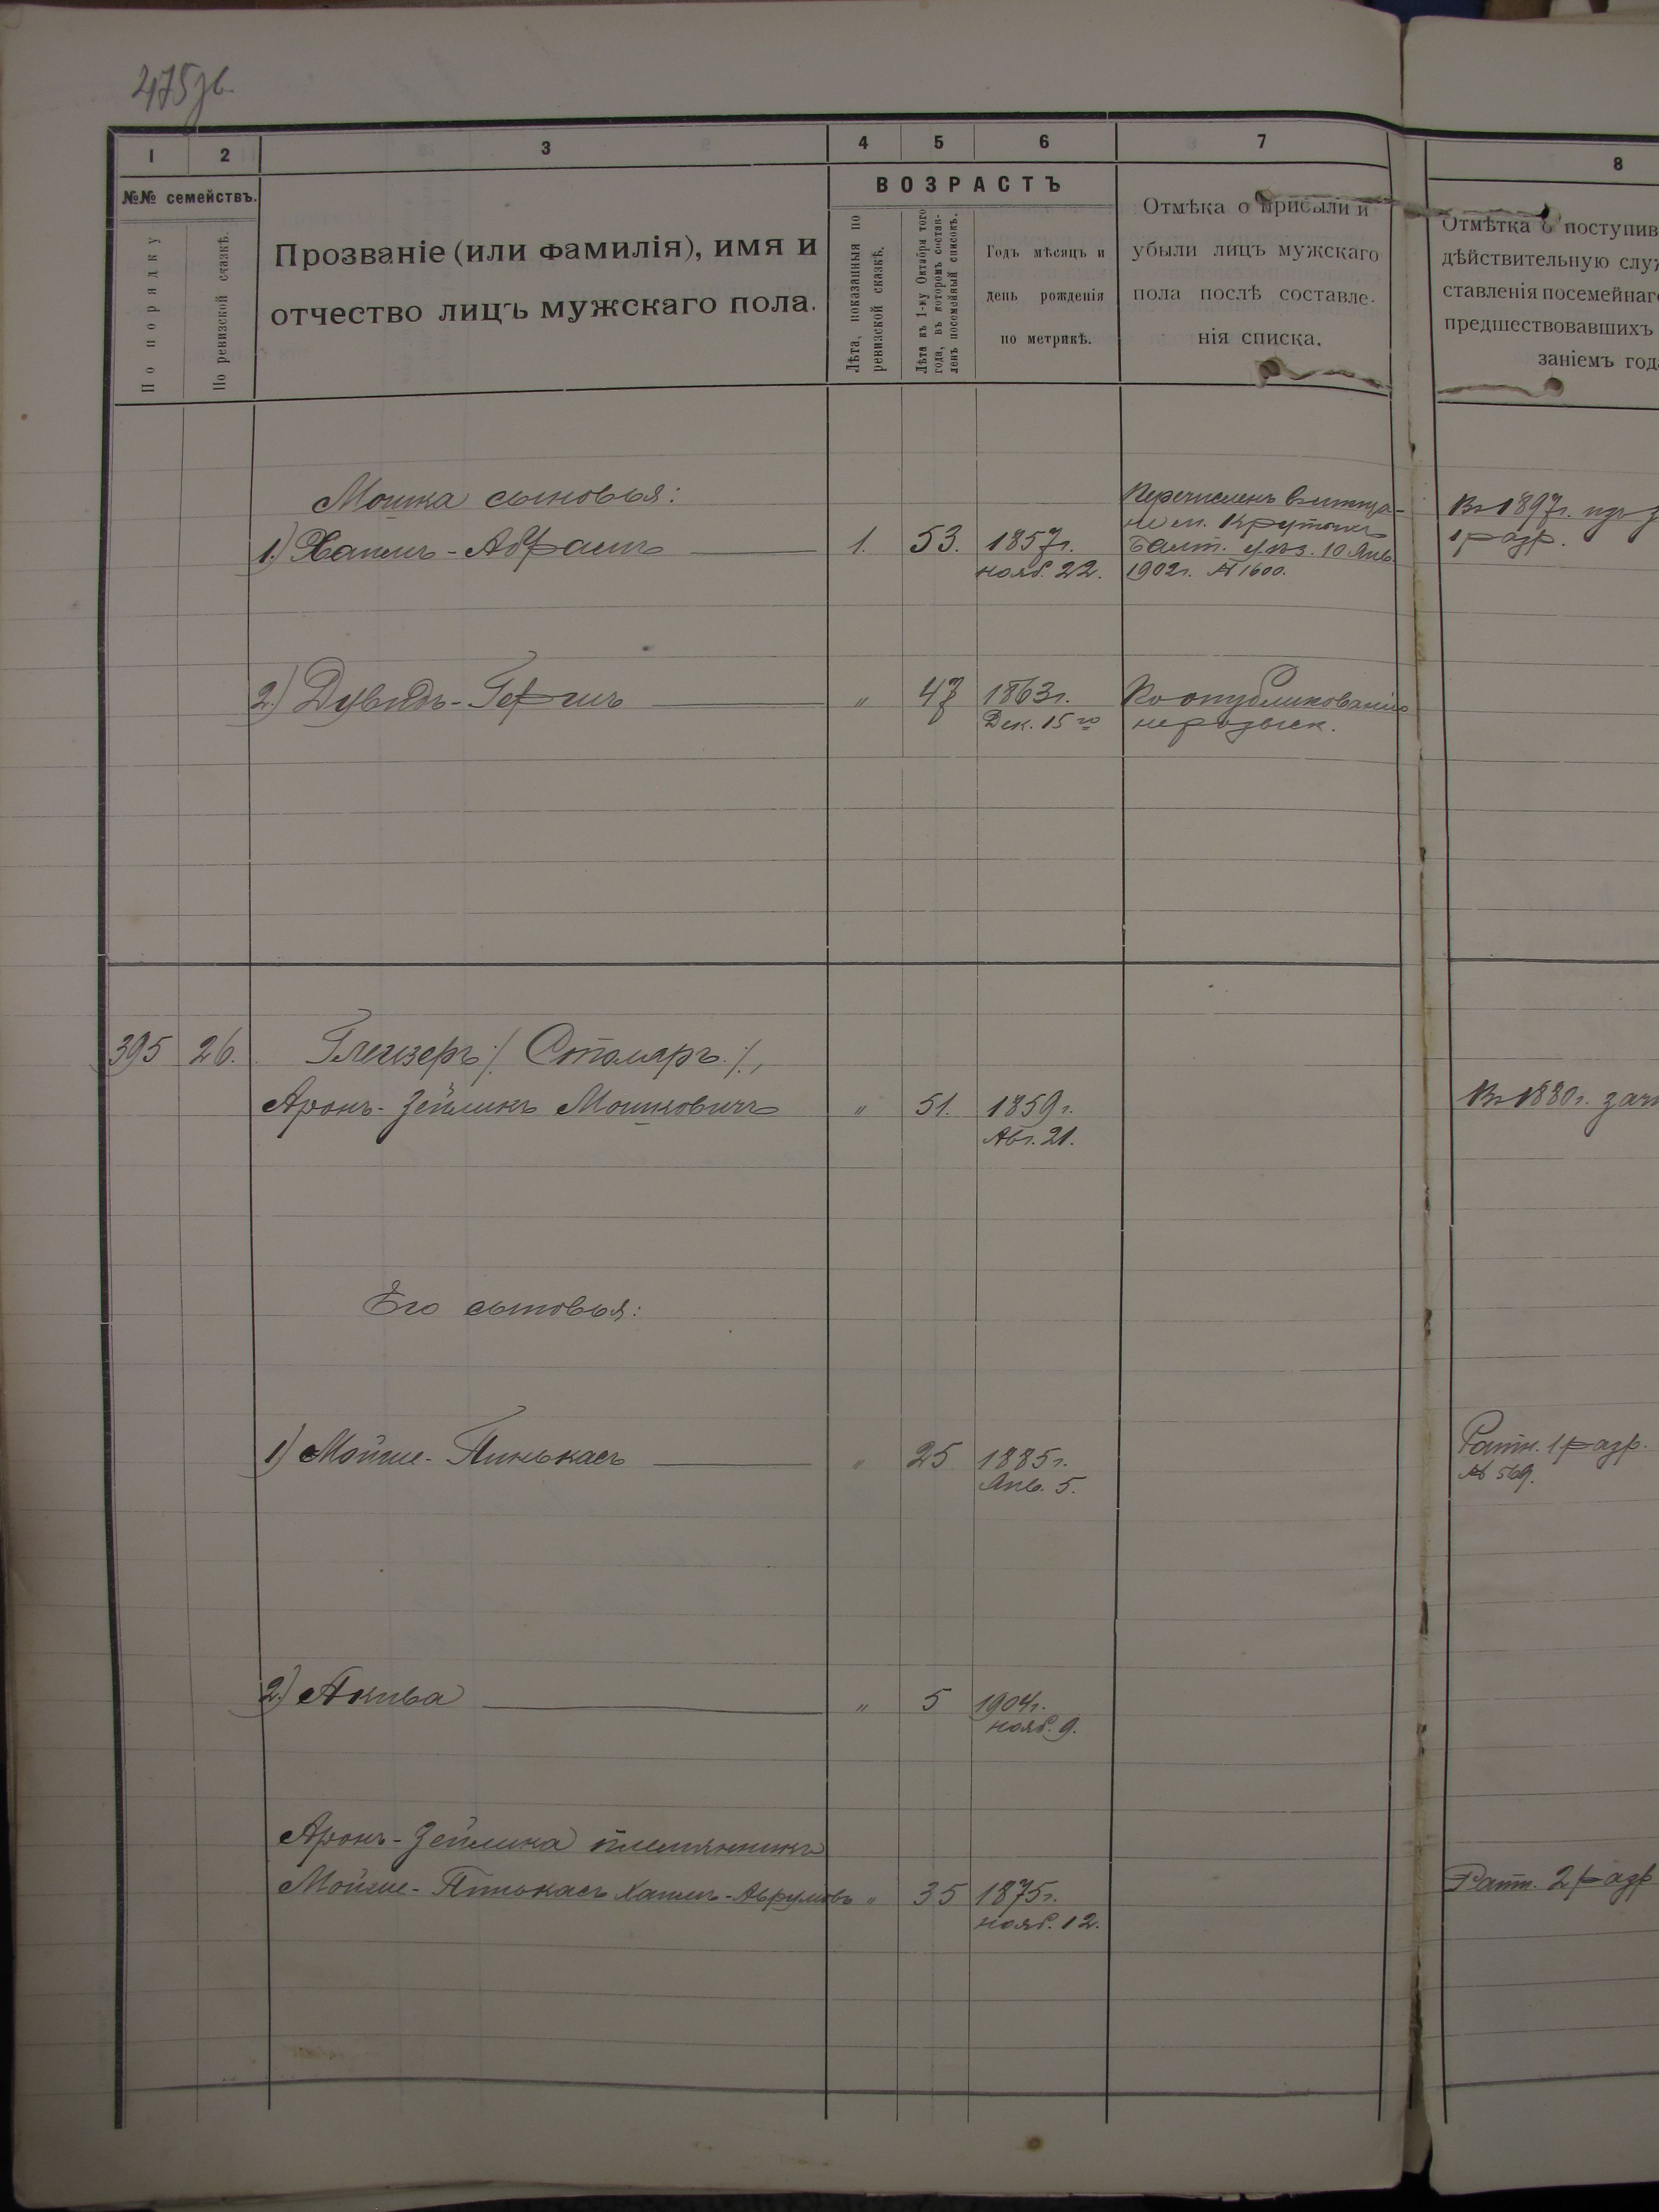 475 зв.
1 2 3 4 5 6 7 8
№№ семействъ.
По порядку
По ревизской сказкѣ.
Прозваніе (или фамилія), имя и
отчество лицъ мужскаго пола.
ВОЗРАСТЪ
Лѣта, показанныя по
ревизской сказкѣ.
Лѣта къ 1-му Октября того
года, въ которомъ состав-
ленъ посемейный списокъ.
Годъ мѣсяцъ и
день рожденія
по метрикѣ.
Отмѣка о прибыли и
убыли лицъ мужскаго
пола послѣ составле-
нія списка.
Отмѣтка о поступив
дѣйствительную служ
ставленія посемейнаго
предшествовавшихъ
заніемъ год
Мошка сыновья:
1.) Хаимъ-Абрамъ 1. 53. 1857г.
нояб. 22.
Перечисленъ
м. Крутыхъ
Балт. у. 10 Янв.
1902г. № 1600.
Въ 1897г.
1 разр.
2.) Дувидъ-Гершъ " 47 1863г.
Дек. 15го
По опубликованію
неразыск.
395 26. Глейзеръ /: Столяръ :/,
Аронъ-Зейликъ Мошковичъ " 51. 1859г.
Авг. 21.
Въ 1880г.
Его сыновья:
1) Мойше-Пинькасъ " 25 1885г.
Янв. 5.
Ратн. 1 разр.
№ 569.
2.) Акива " 5 1904г.
нояб. 9.
Аронъ-Зейлика племянникъ
Мойше-Пинькасъ Хаимъ-Аврумовъ " 35 1875г.
нояб. 12.
Ратн. 2 разр